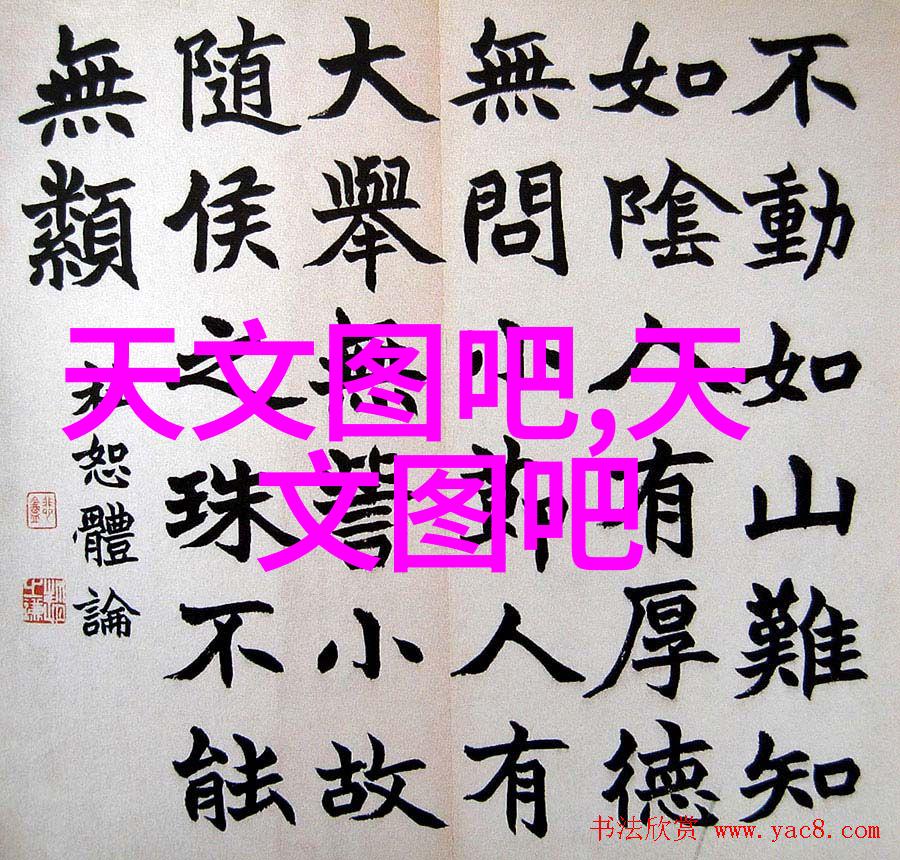 不動如山難知
如陰人有厚德
無問小節人有
大舉無小故
隨侯之珠不能
無纇
恕體論
天文图吧,天
文图吧
书法欣赏 www.yac8.com